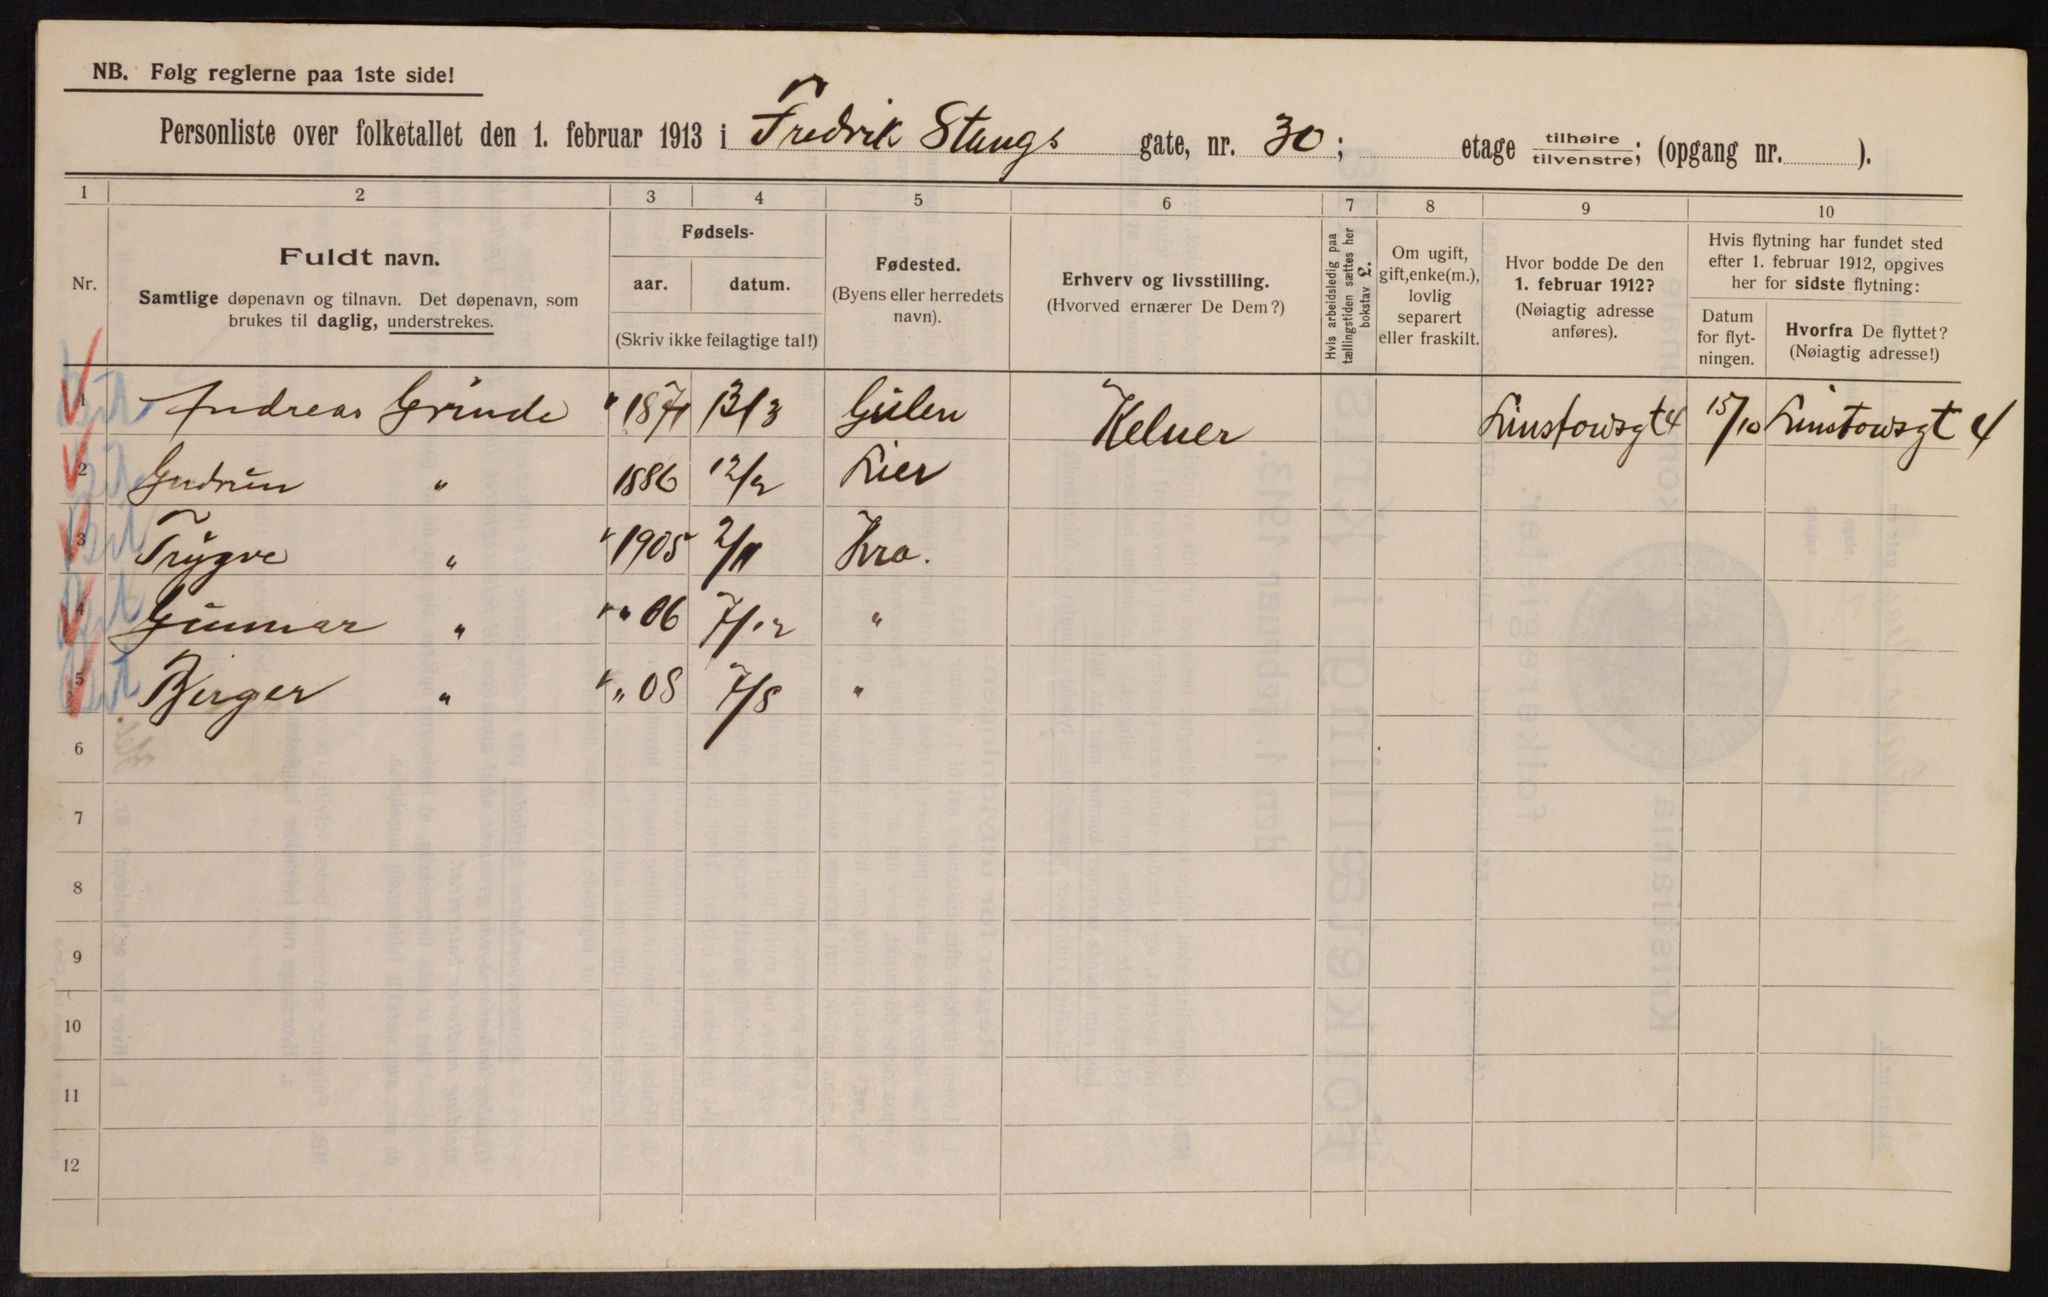 NB. Følg reglerne paa 1ste side!
Personliste over folketallet den 1. februar 1913 i Fredrik Stangs gate, nr. 30; etage tilhøire; tilvenstre; (opgang nr. ).
1 2 3 4 5 6 7 8 9 10
Nr.
Fuldt navn.
Samtlige døpenavn og tilnavn. Det døpenavn, som
brukes til daglig, understrekes.
Fødsels-
aar. datum.
(Skriv ikke feilagtige tal!)
Fødested.
(Byens eller herredets
navn).
Erhverv og livsstilling.
(Hvorved ernærer De Dem?)
Hvis arbeidsledig paa
tællingstiden sættes her
bokstav L.
Om ugift,
gift, enke(m.),
lovlig
separert
eller fraskilt.
Hvor bodde De den
1. februar 1912?
(Nøiagtig adresse
anføres).
Hvis flytning har fundet sted
efter 1. februar 1912, opgives
her for sidste flytning:
Datum
for flyt-
ningen.
Hvorfra De flyttet?
(Nøiagtig adresse!)
1 Andreas Grinde 1871 13/3 Gulen Kelner Linstowsgt 4 15/10 Linstowsgt 4
2 Gudrun " 1886 12/2 Lier
3 Trygve " 1905 2/11 Kra.
4 Gunnar " " 06 7/12 "
5 Birger " " 08 7/8 "
6
7
8
9
10
11
12